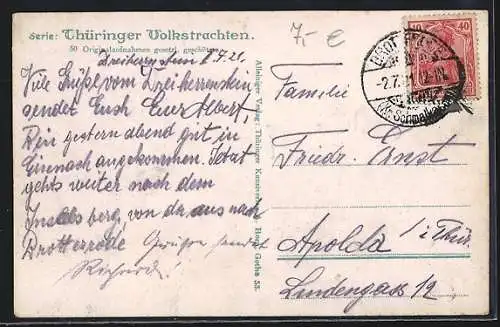 Serie: Thüringer Volkstrachten.
50 Originalaufnahmen gesetzl. geschützt.
7,- €
Dreiherrnstein 2.7.21.
Viele Grüße vom Dreiherrenstein
sendet Euch Euer Albert,
Bin gestern abend gut in
Eisenach angekommen. Jetzt
gehts weiter nach dem
Inselsberg, von da aus nach
Brotterode Grüße sendet
Richard!
Alleiniger Verlag: Thüringer Kunstverlag Gotha 53.
40 40
BROTTERODE
-2.7.21
(Kr. Schmalkalden)
Familie
Friedr. Ernst
Apolda i/Thür.
Lindengass 12